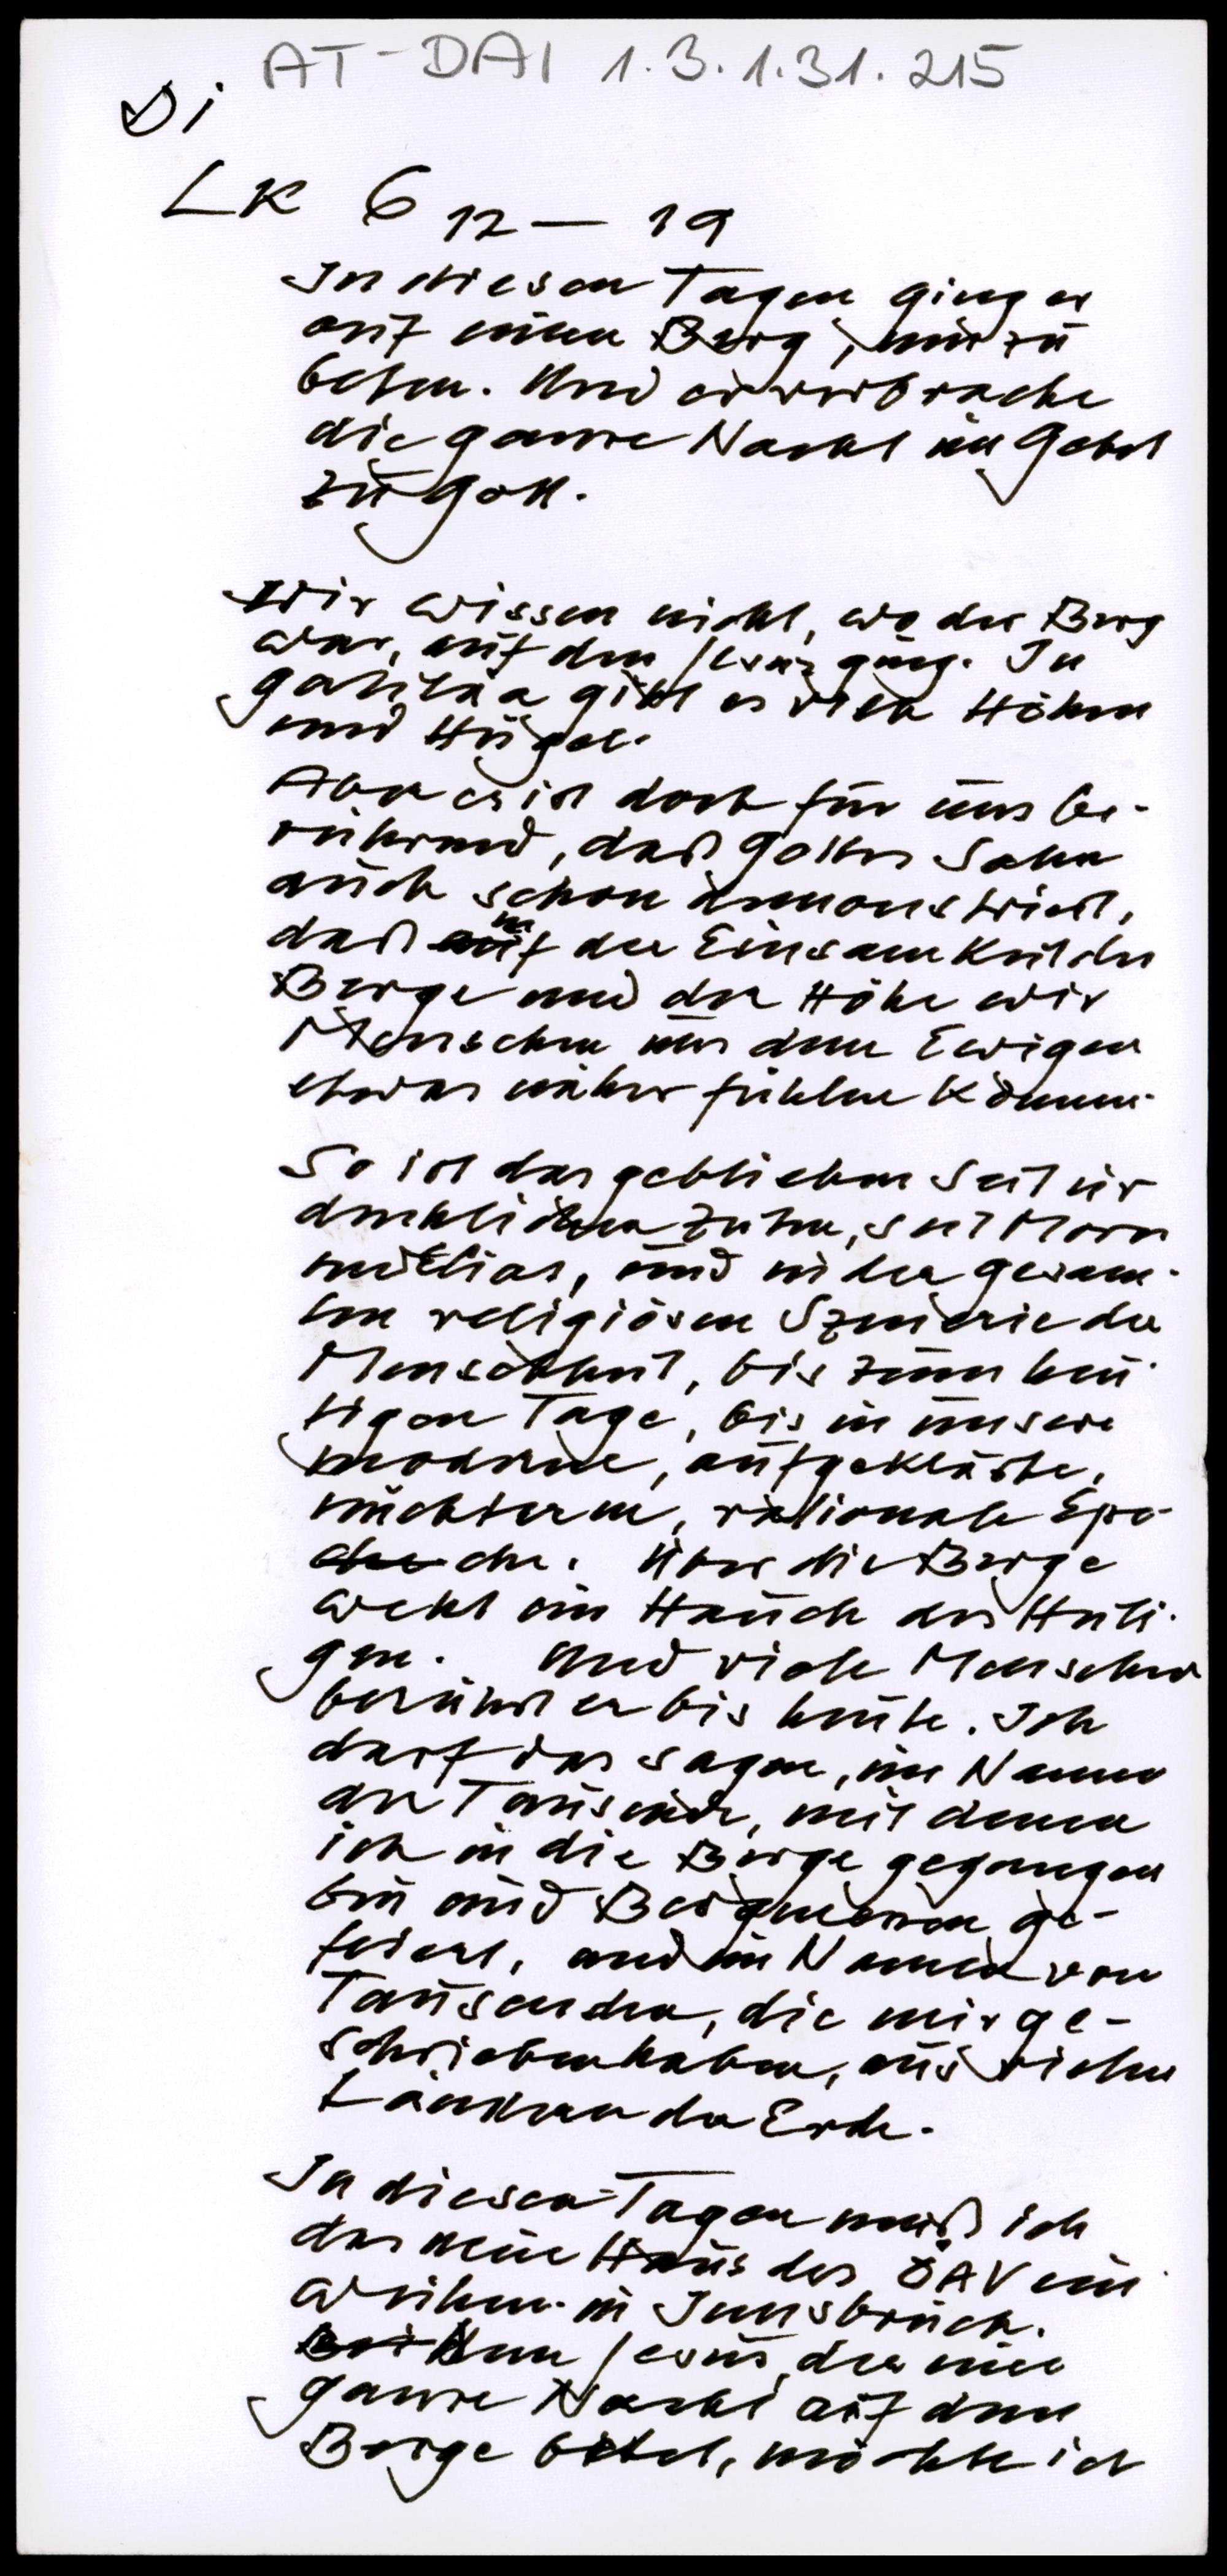 AT-DAI 1.3.1.31.215
Di
LK 6 12-19
In diesen Tagen ging er
auf einen Berg, um zu
beten. Und er verbrachte
die ganze Nacht im Gebet
zu Gott.
Wir wissen nicht, wo der Berg
war, auf den Jesus ging. In
Galiläa gibt es viele Höhen
und Hügel.
Aber es ist doch für uns be-
rührend, daß Gottes Sohn
auch schon demonstriert,
daß in der Einsamkeit der
Berge und der Höhe wir
Menschen uns dem Ewigen
etwas näher fühlen können.
So ist das geblieben seit ur
denklichen Zeiten, seit Moses
und Elias, und in der gesam-
ten religiösen Szenerie der
Menschheit, bis zum heu-
tigen Tage, bis in unsere
moderne, aufgeklärte,
nüchterne, rationale Epo-
che. Über die Berge
weht ein Hauch des Heili-
gen. Und viele Menschen
berührt er bis heute. Ich
darf das sagen, im Namen
der Tausende, mit denen
ich in die Berge gegangen
bin und Bergmessen ge-
feiert, und im Namen von
Tausenden, die mir ge-
schrieben haben, aus vielen
Ländern der Erde.
In diesen Tagen muß ich
das neue Haus des ÖAV ein-
weihen in Innsbruck.
Den Jesus, der eine
ganze Nacht auf dem
Berge betet, möchte ich